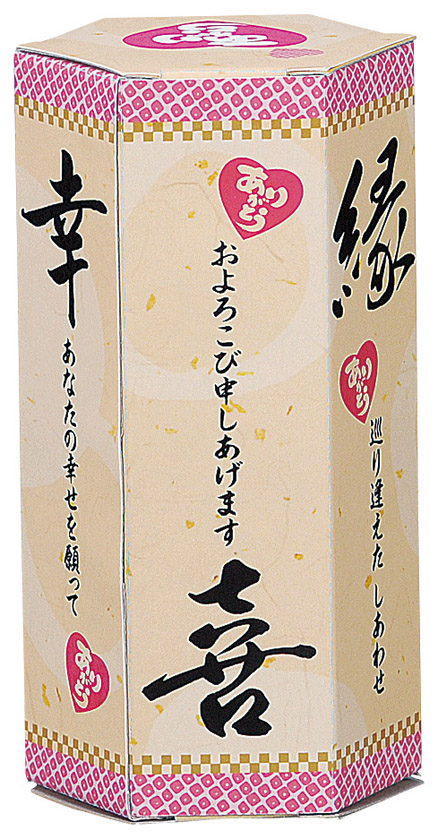 縁
ありがとう
巡り逢えたしあわせ
ありがとう
およろこび申しあげます
喜
幸
あなたの幸せを願って
ありがとう